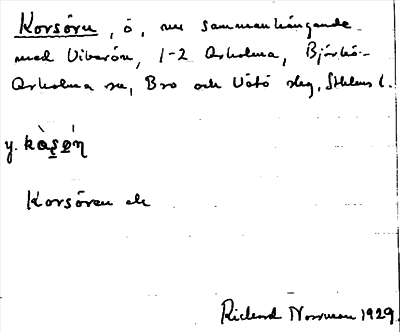 Korsören, ö, nu sammanhängande
med Viberön, 1-2 Arholma, Björkö-
Arholma sn, Bro och Vätö slg, Sthlms l.
y. kɑ̀şøṇ́
Korsören ek
Richard Norrman 1929.